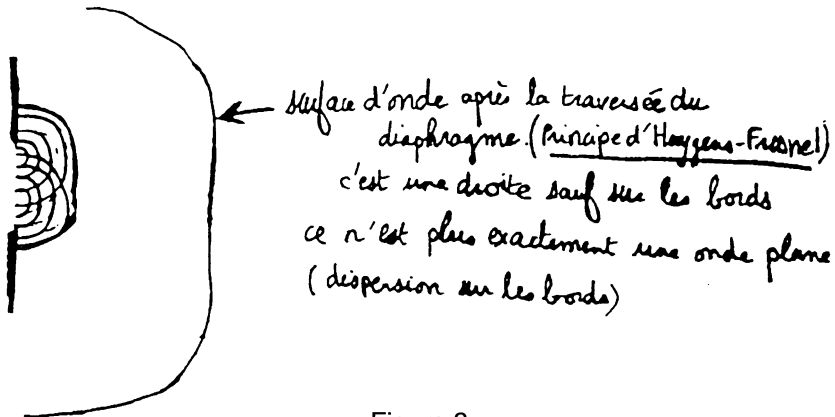 surface d'onde après la traversée du
diaphragme. (Principe d'Huygens-Fresnel)
c'est une droite sauf sur les bords
ce n'est plus exactement une onde plane
(dispersion sur les bords)